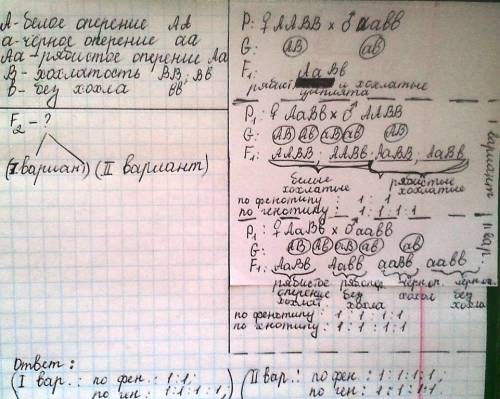 А - белое оперение АА
а - чёрное оперение аа
Аа - рябистое оперение Аа
В - хохлатость ВВ; Вв
в - без хохла вв
F₂ - ?
(I вариант) (II вариант)
Р: ♀ ААВВ × ♂ аавв
G: АВ ав
F₁: АаВв
рябист и хохлатые
цыплята
Р₁: ♀ АаВв × ♂ ААВВ
G: АВ Ав аВ ав АВ
F₁: ААВВ; ААВв; АаВВ, АаВв
белые рябистые
хохлатые хохлатые
по фенотипу: 1 : 1
по генотипу: 1 : 1 : 1 : 1
I вариант
II вар.
Р₁: ♀ АаВв × ♂ аавв
G: АВ Ав аВ ав ав
F₁: АаВв Аавв ааВв аавв
рябистое рябопер. чёрн.оп. чёрн.оп.
оперение без хохол без
хохлат. хохла хохла
по фенотипу: 1 : 1 : 1 : 1
по генотипу: 1 : 1 : 1 : 1
Ответ:
(I вар.: по фен.: 1:1;
по ген.: 1:1:1:1;)
(II вар.: по фен.: 1:1:1:1;
по ген.: 1:1:1:1)